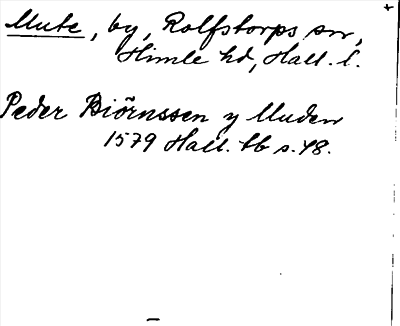 Mute, by, Rolfstorps sn,
Himle hd, Hall. l.
Peder Biörnssen y Muden
1579 Hall. tb s. 48.